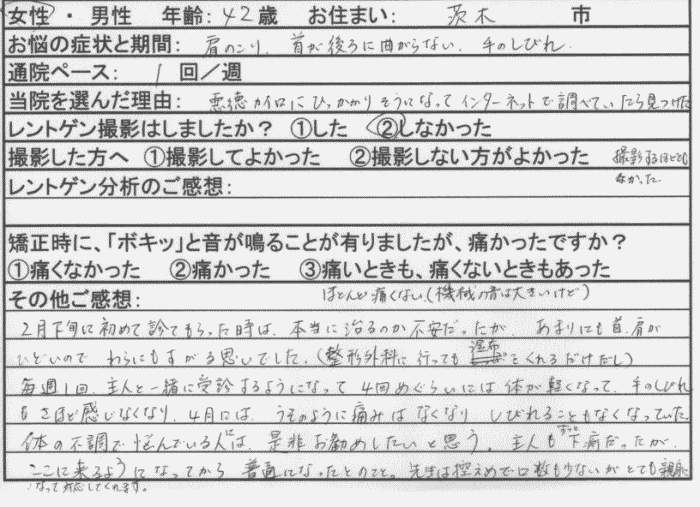 女性 ・ 男性 年齢: 42歳 お住まい: 茨木 市
お悩の症状と期間: 肩のこり、首が後ろに曲がらない、手のしびれ
通院ペース: 1 回/週
当院を選んだ理由: 悪徳カイロにひっかかりそうになってインターネットで調べていたら見つけた
レントゲン撮影はしましたか? ①した ②しなかった
撮影した方へ ①撮影してよかった ②撮影しない方がよかった 撮影するほどでも
なかった
レントゲン分析のご感想:
矯正時に、「ボキッ」と音が鳴ることが有りましたが、痛かったですか?
①痛くなかった ②痛かった ③痛いときも、痛くないときもあった
その他ご感想: ほとんど痛くない(機械の音は大きいけど)
2月下旬に初めて診てもらった時は、本当に治るのか不安だったが あまりにも首、肩が
ひどいので わらにもすがる思いでした。(整形外科に行っても 湿布をくれるだけだし)
毎週1回、主人と一緒に受診するようになって 4回めぐらいには体が軽くなって、手のしびれ
もさほど感じなくなり、4月には、うそのように痛みはなくなり しびれることもなくなっていた。
体の不調で悩んでいる人には、是非お勧めしたいと思う。主人もずっと下痢だったが、
ここに来るようになってから 普通になったとのこと。先生は控えめで口数も少ないが とても親身
になって対応してくれます。